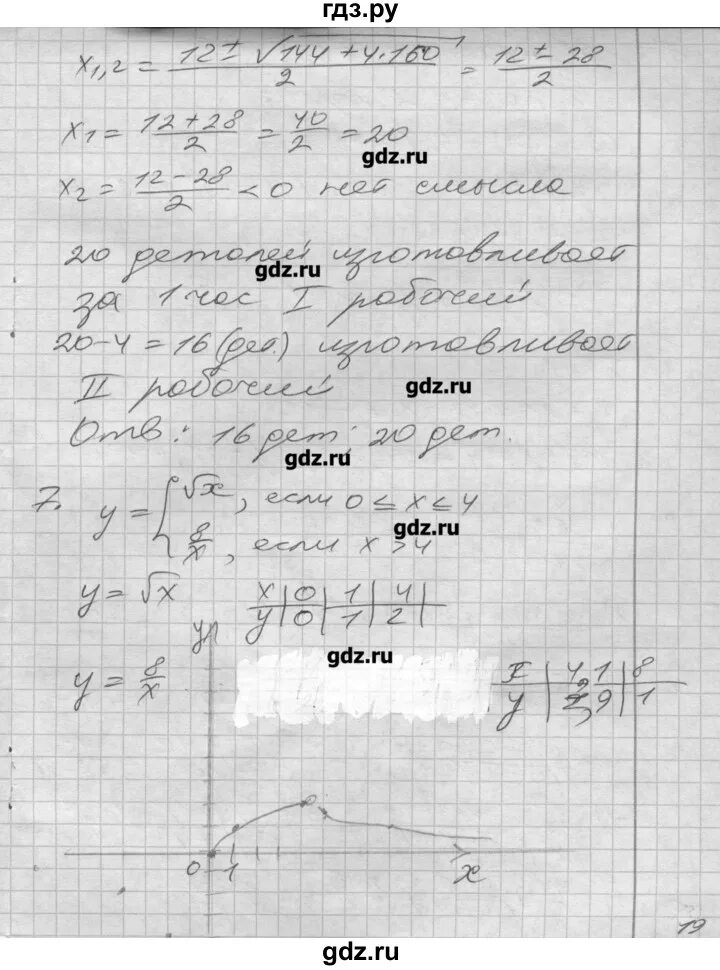 гдз.ру
x₁,₂ = (12 ± √(144 + 4·160))/2 = (12 ± 28)/2
x₁ = (12 + 28)/2 = 40/2 = 20
gdz.ru
x₂ = (12 − 28)/2 < 0 нет смысла
20 деталей изготавливает
gdz.ru
за 1 час I рабочий
20 − 4 = 16 (дет.) изготавливает
II рабочий
gdz.ru
Отв: 16 дет; 20 дет.
gdz.ru
7. y = { √x, если 0 ≤ x ≤ 4
gdz.ru
8/x, если x > 4
y = √x x | 0 | 1 | 4 |
y | 0 | 1 | 2 |
y
gdz.ru
y = 8/x x | 4,1 | 8
y | 9 | 1
0 1 x
19
gdz.ru